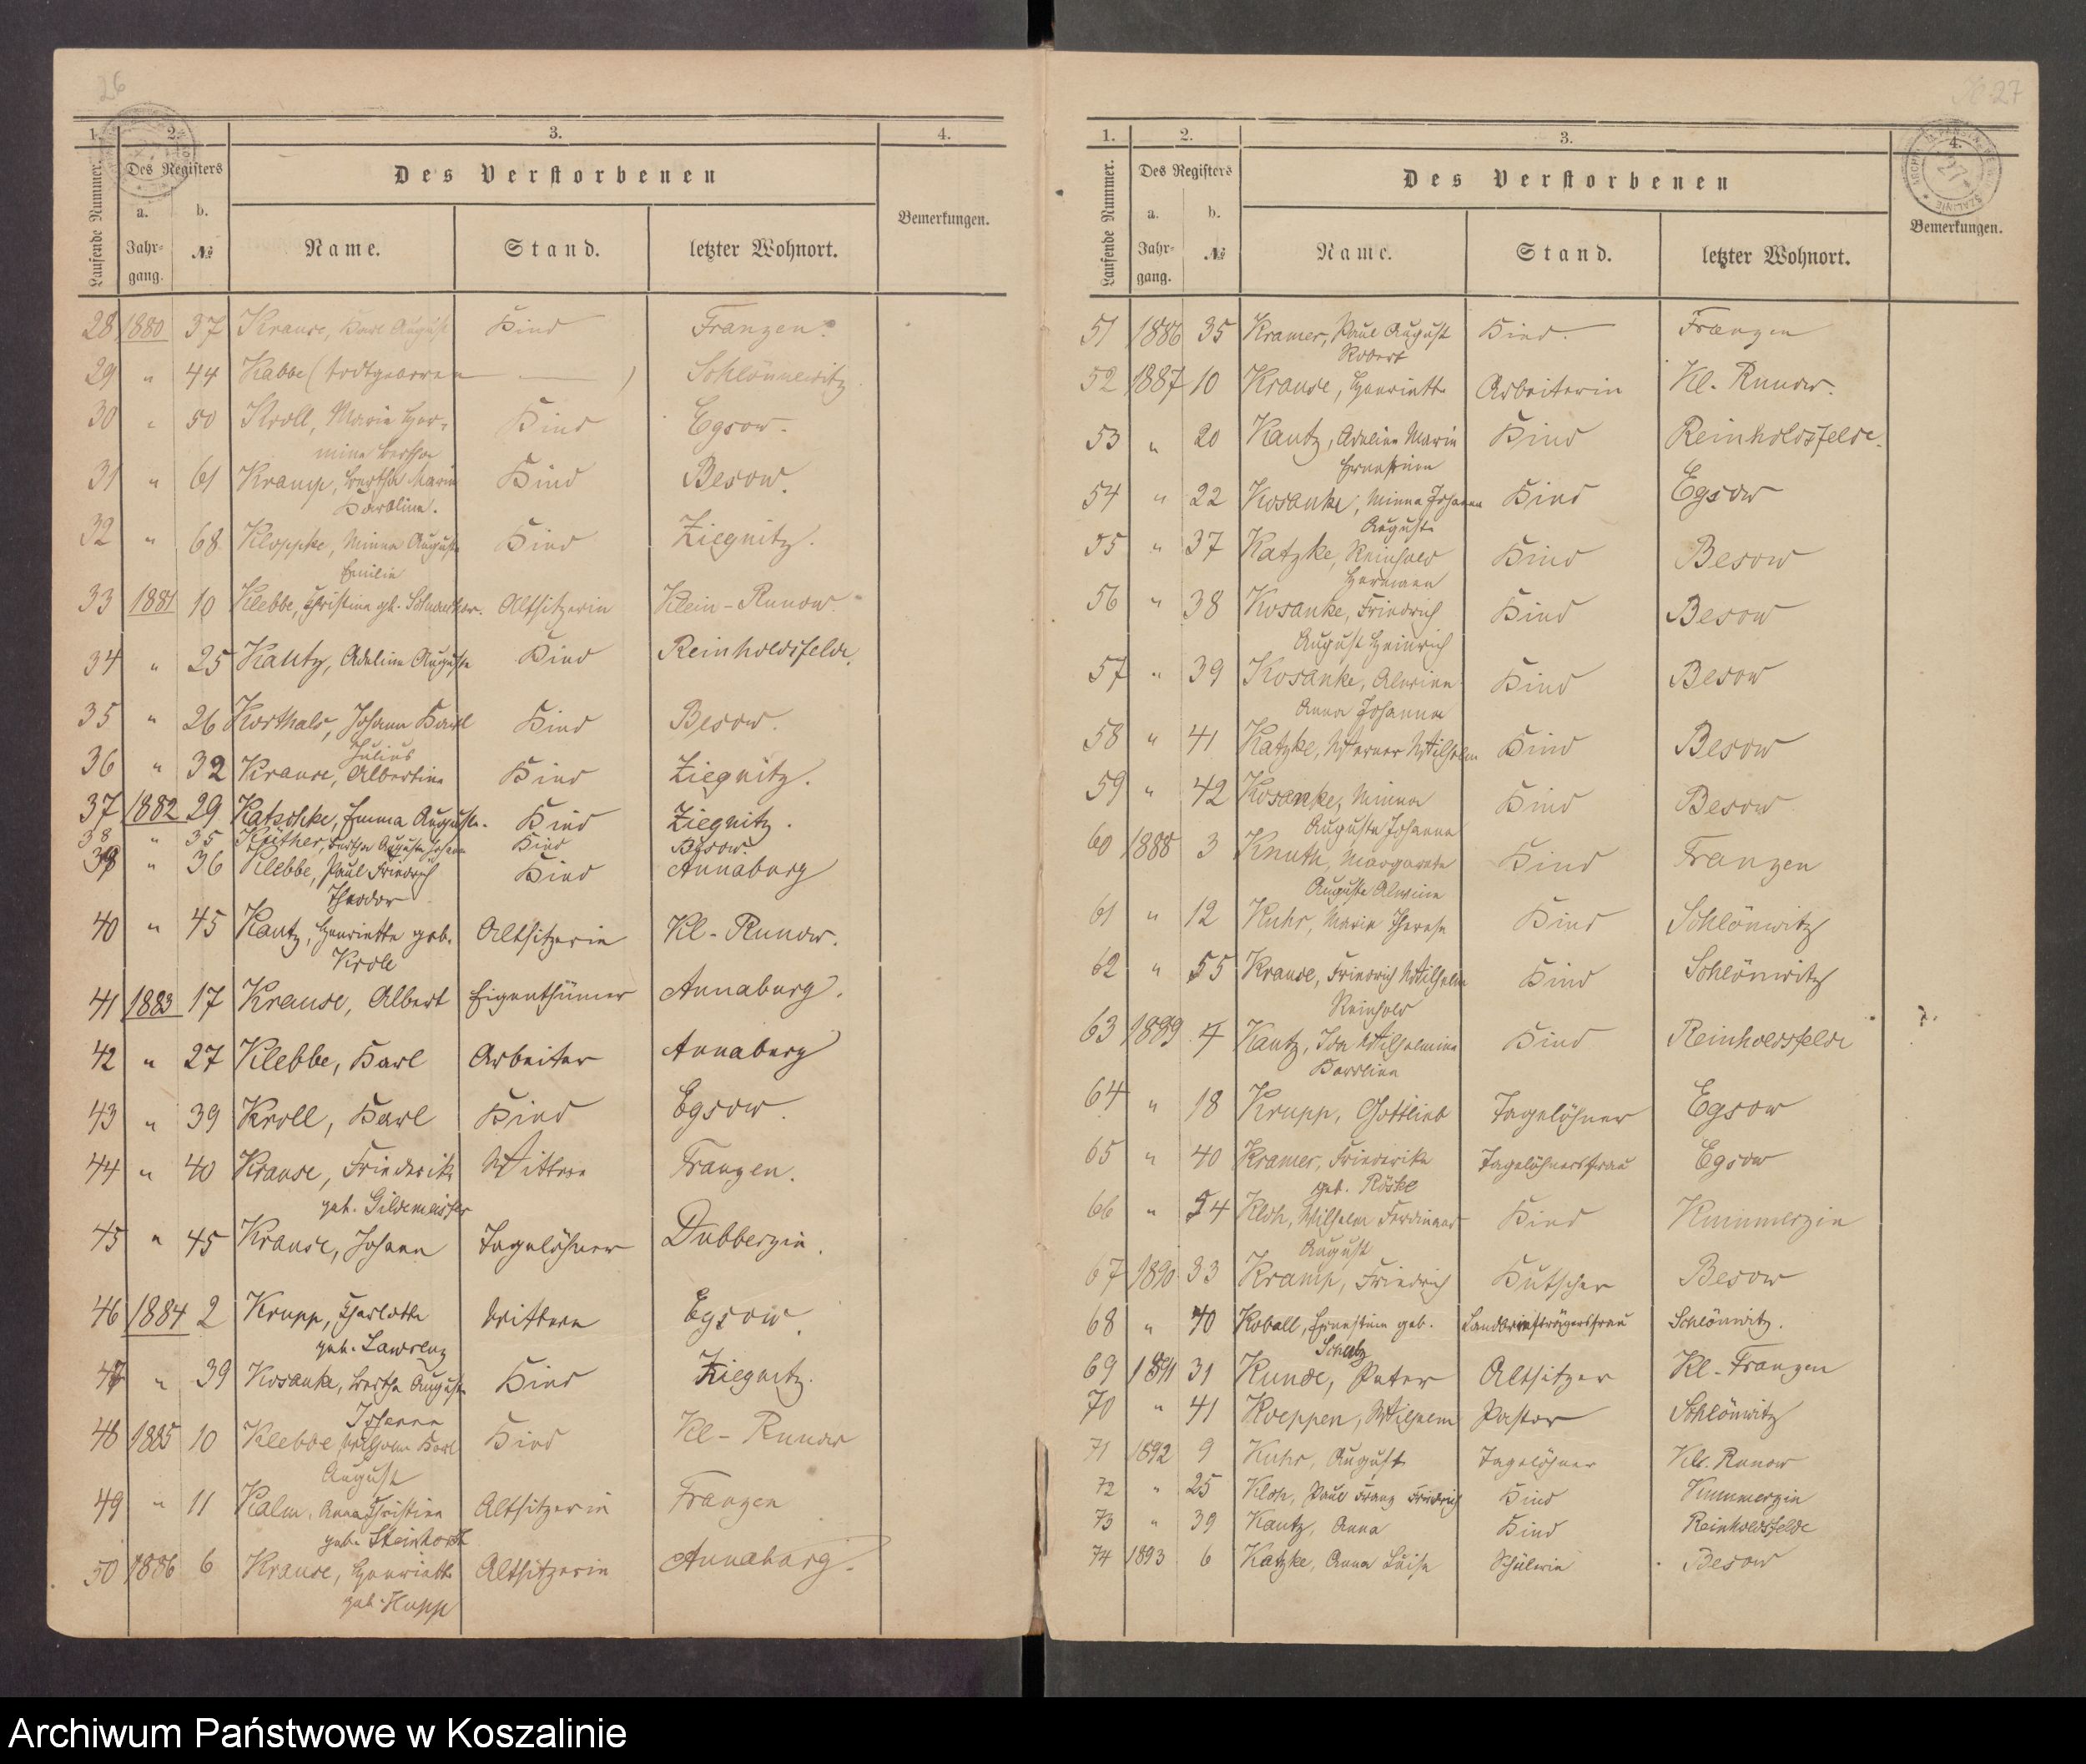 26
1. 2. 3. 4.
Laufende Nummer. Des Registers Des Verstorbenen Bemerkungen.
a. b.
Jahrgang. № Name. Stand. letzter Wohnort.
28 1880 37 Krause, Karl August Kind Franzen.
29 " 44 Kabbe (todtgeboren — ) Schlönnewitz.
30 " 50 Kroll, Marie Her- Kind Egsow.
mine Bertha
31 " 61 Kramp, Bertha Marie Kind Besow.
Karoline.
32 " 68 Kloppke, Minna Auguste Kind Ziegnitz.
Emilie
33 1881 10 Klebbe, Christine gb. Altsitzerin Klein-Runow.
34 " 25 Kautz, Adeline Auguste Kind Reinholdsfelde.
35 " 26 Korthals, Johann Karl Kind Besow.
Julius
36 " 32 Krause, Albertine Kind Ziegnitz.
37 1882 29 Katschke, Emma Auguste. Kind Ziegnitz.
38 " 35 Küther, Bertha Auguste Johanna Kind Besow.
39 " 36 Klebbe, Paul Friedrich Kind Annaburg
Theodor
40 " 45 Kautz, Henriette geb. Altsitzerin Kl-Runow.
Kroll
41 1883 17 Krause, Albert Eigenthümer Annaburg.
42 " 27 Klebbe, Karl Arbeiter Annaburg
43 " 39 Kroll, Karl Kind Egsow.
44 " 40 Krause, Friederike Wittwe Franzen.
geb. Gildemeister
45 " 45 Krause, Johann Tagelöhner Dubberzin.
46 1884 2 Krupp, Charlotte Wittwe Egsow.
geb. Lawrenz
47 " 39 Kosanke, Bertha Auguste Kind Ziegnitz.
Johanna
48 1885 10 Klebbe, Wilhelm Karl Kind Kl-Runow
August
49 " 11 Kalm, Anna Christine Altsitzerin Franzen
geb. Steinhorst
50 1886 6 Krause, Henriette Altsitzerin Annaburg.
geb. Hupp
27
1. 2. 3. 4.
Laufende Nummer. Des Registers Des Verstorbenen Bemerkungen.
a. b.
Jahrgang. № Name. Stand. letzter Wohnort.
51 1886 35 Kramer, Paul August Kind. Franzen
Robert
52 1887 10 Krause, Henriette Arbeiterin Kl. Runow.
53 " 20 Kautz, Adeline Marie Kind Reinholdsfelde.
Ernestine
54 " 22 Kosanke, Minna Johanna Kind Egsow
Auguste
55 " 37 Katzke, Reinhold Kind Besow
Hermann
56 " 38 Kosanke, Friedrich Kind Besow
August Heinrich
57 " 39 Kosanke, Alwine Kind Besow
Anna Johanna
58 " 41 Katzke, Werner Wilhelm Kind Besow
59 " 42 Kosanke, Minna Kind Besow
Auguste Johanna
60 1888 3 Knuth, Margarete Kind Franzen
Auguste Alwine
61 " 12 Kuhr, Marie Therese Kind Schlönwitz
62 " 55 Krause, Friedrich Wilhelm Kind Schlönwitz
Reinhold
63 1889 4 Kautz, Ida Wilhelmine Kind Reinholdsfelde
Karoline
64 " 18 Krupp, Gottlieb Tagelöhner Egsow
65 " 40 Kramer, Friederike Tagelöhnersfrau Egsow
geb. Röske
66 " 54 Kloh, Wilhelm Ferdinand Kind Kummerzin
August
67 1890 33 Kramp, Friedrich Kutscher Besow
68 " 40 Koball, Ernestine geb. Landbriefträgersfrau Schlönwitz.
Schulz
69 1891 31 Kunde, Peter Altsitzer Kl-Franzen
70 " 41 Koeppen, Wilhelm Pastor Schlönwitz
71 1892 9 Kuhr, August Tagelöhner Kl. Runow
72 " 25 Kloh, Paul Franz Friedrich Kind Kummerzin
73 " 39 Kautz, Anna Kind Reinholdsfelde
74 1893 6 Katzke, Anna Luise Schülerin Besow
Archiwum Państwowe w Koszalinie